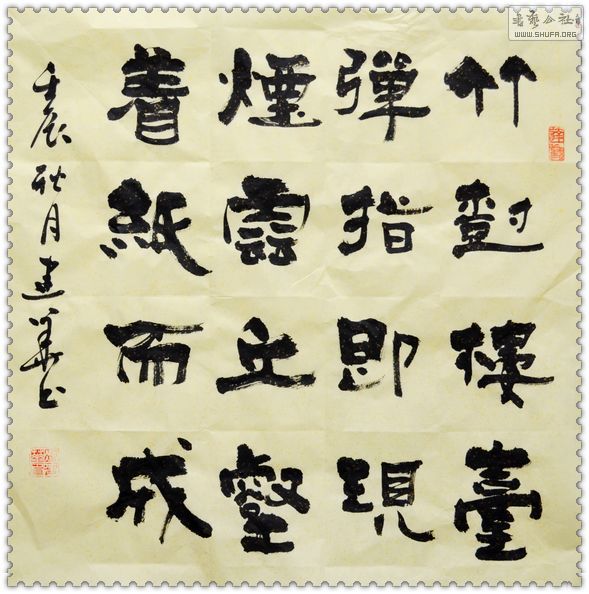 竹尌樓臺
彈指即現
煙雲丘壑
着紙而成
壬辰秋月建華书
書藝公社
WWW.SHUFA.ORG